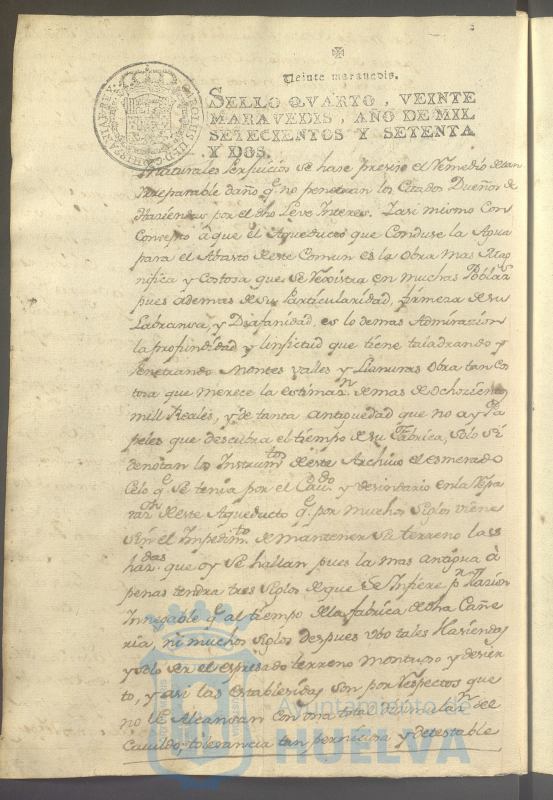 Veinte maravedis.
SELLO QVARTO, VEINTE
MARAVEDIS, AÑO DE MIL
SETECIENTOS Y SETENTA
Y DOS.
Naturales perjuicios se hase presiso el Remedio de tan
Irreparable daño q.e no penetran los Citados Dueños de
Haziendas por el dho Leve Interes. Y asi mismo Con
Consepto à que el Aqueducto que Conduse la Agua
para el Abasto de este Comun es la obra mas Mag
nifica y Costosa que se Rexistra en muchas Poblaz.s
pues àdemas de su particularidad, primera de su
Labransa, y Diafanidad, es lo demas Admirazion
la profundidad y Longitud que tiene taladrando y
penetrando Montes valles y Llanuras Obra tan Cos
tosa que merece la estimaz.n de mas de Ochozientos
mill Reales, y de tanta antiguedad que no ay Pa
peles que descubra el tiempo de su Fabrica, solo se
denotan los Instrum.tos de este Archivo el esmerado
Celo q.e se tenia por el Cav.do y vesindario en la Repa
raz.on de este Aqueducto q.e por muchos siglos viene
sin el Impedim.to de mantener su terreno las
haz.das que oy se hallan pues la mas antigua à
penas tendra tres siglos de que se Infiere p.r Razon
Innegable q.e al tiempo de la fabrica de dha Cañe
ria, ni muchos siglos despues ubo tales Haziendas
y solo ser el espresado terreno montuoso y desier
to, y asi las establesidas son por Respectos que
no se Alcansan Con una total disimulaz.n del
Cavildo, tolerancia tan perniciosa y detestable
Ayuntamiento de
HUELVA